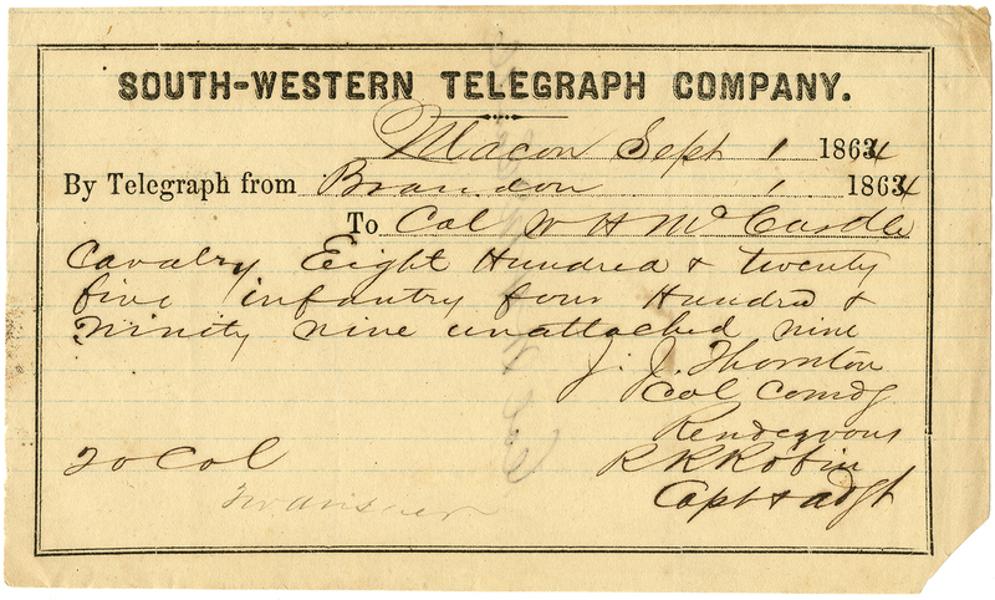 SOUTH-WESTERN TELEGRAPH COMPANY.
Macon Sept 1 1864
By Telegraph from Brandon 1 1864
To Col W H McCardle
Cavalry Eight Hundred & twenty
five infantry four Hundred &
Ninity nine unattached nine
J. J. Thornton
Col Comdg
Rendezvous
R R Robin
Capt & adgt
20 Col